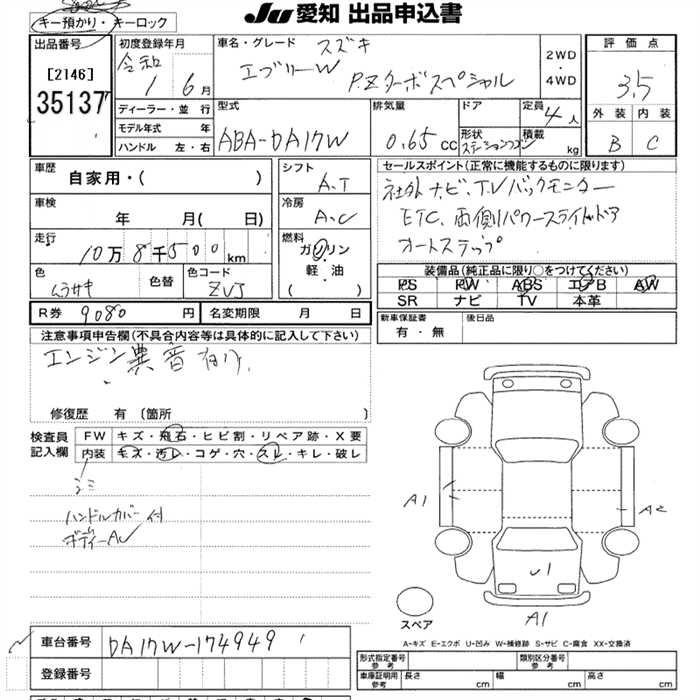 キー預かり・キーロック
JU 愛知 出品申込書
出品番号
[2146]
35137
初度登録年月
令和
1 6月
ディーラー・並行
モデル年式 年
ハンドル 左・右
車名・グレード スズキ
エブリーW
P.Zターボスペシャル
2WD
・
4WD
評価点
3.5
外装 内装
B C
型式
ABA-DA17W
排気量
0.65 cc
ドア
形状
ステーションワゴン
定員
4人
積載
kg
車歴
自家用・( )
車検
年 月( 日)
走行
10万8千500km
色
ムラサキ
色替
色コード
ZVJ
シフト
A.T
冷房
A.C
燃料
ガソリン
軽・油
( )
セールスポイント(正常に機能するものに限ります)
社外ナビ、TV バックモニター
ETC、両側パワースライドドア
オートステップ
装備品(純正品に限り○をつけてください)
PS PW ABS エアB AW
SR ナビ TV 本革
R券 9080 円
名変期限 月 日
新車保証書
有・無
後日品
注意事項申告欄(不具合内容等は具体的に記入して下さい)
エンジン異音有り、
修復歴 有 〔箇所 〕
検査員
記入欄
FW キズ・飛石・ヒビ割・リペア跡・X要
内装 キズ・汚レ・コゲ・穴・スレ・キレ・破レ
シミ
ハンドルカバー付
ボディーAU
A1
A2
U1
A1
スペア
A-キズ E-エクボ U-凹み W-補修跡 S-サビ C-腐食 XX-交換済
車台番号 DA17W-174949
登録番号
形式指定番号
参考
類別区分番号
参考
車庫証明用
参考
長さ cm
幅 cm
高さ cm